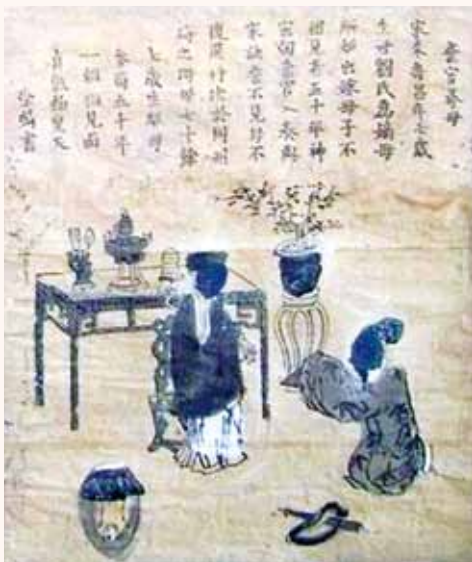 棄官尋母
宋朱壽昌年七歲
生母劉氏為嫡母
所妒出嫁母子不
相見者五十年神
宗朝棄官入秦與
家訣誓不見母不
復還行次於同州
得之時母七十餘
七歲生離母
參商五十年
一朝相見面
喜氣動皇天
書